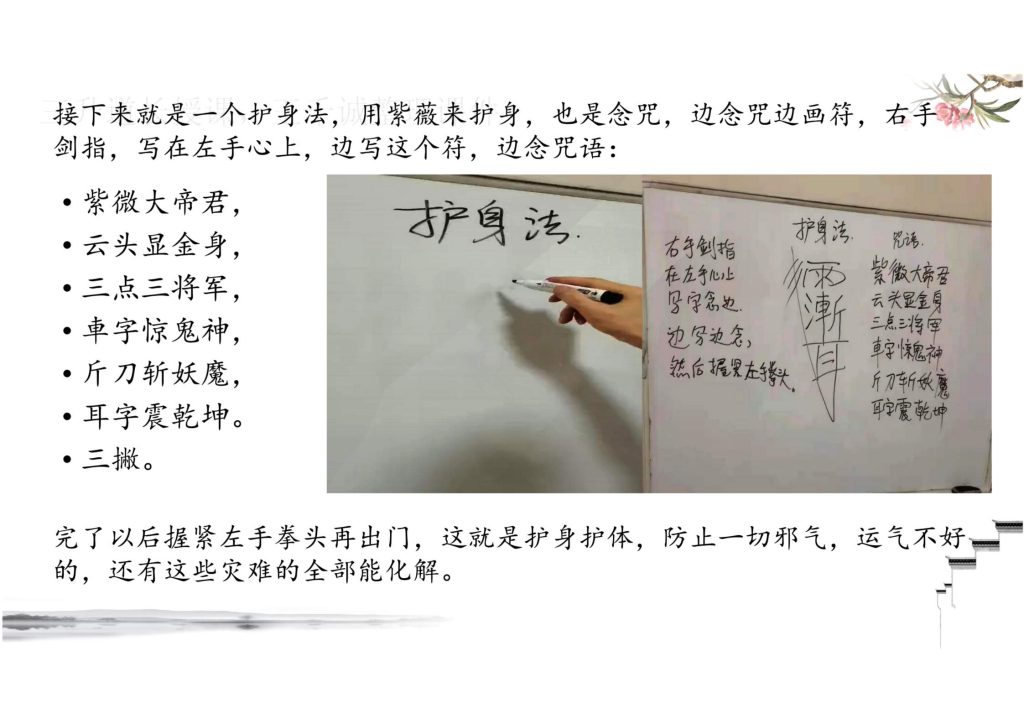 接下来就是一个护身法，用紫薇来护身，也是念咒，边念咒边画符，右手
剑指，写在左手心上，边写这个符，边念咒语：
• 紫微大帝君，
• 云头显金身，
• 三点三将军，
• 車字惊鬼神，
• 斤刀斩妖魔，
• 耳字震乾坤。
• 三撇。
护身法.
护身法.
右手剑指
在左手心上
写字念边.
边写边念,
然后握紧左手拳头.
咒语.
紫微大帝君
云头显金身
三点三将军
車字惊鬼神
斤刀斩妖魔
耳字震乾坤
完了以后握紧左手拳头再出门，这就是护身护体，防止一切邪气，运气不好
的，还有这些灾难的全部能化解。